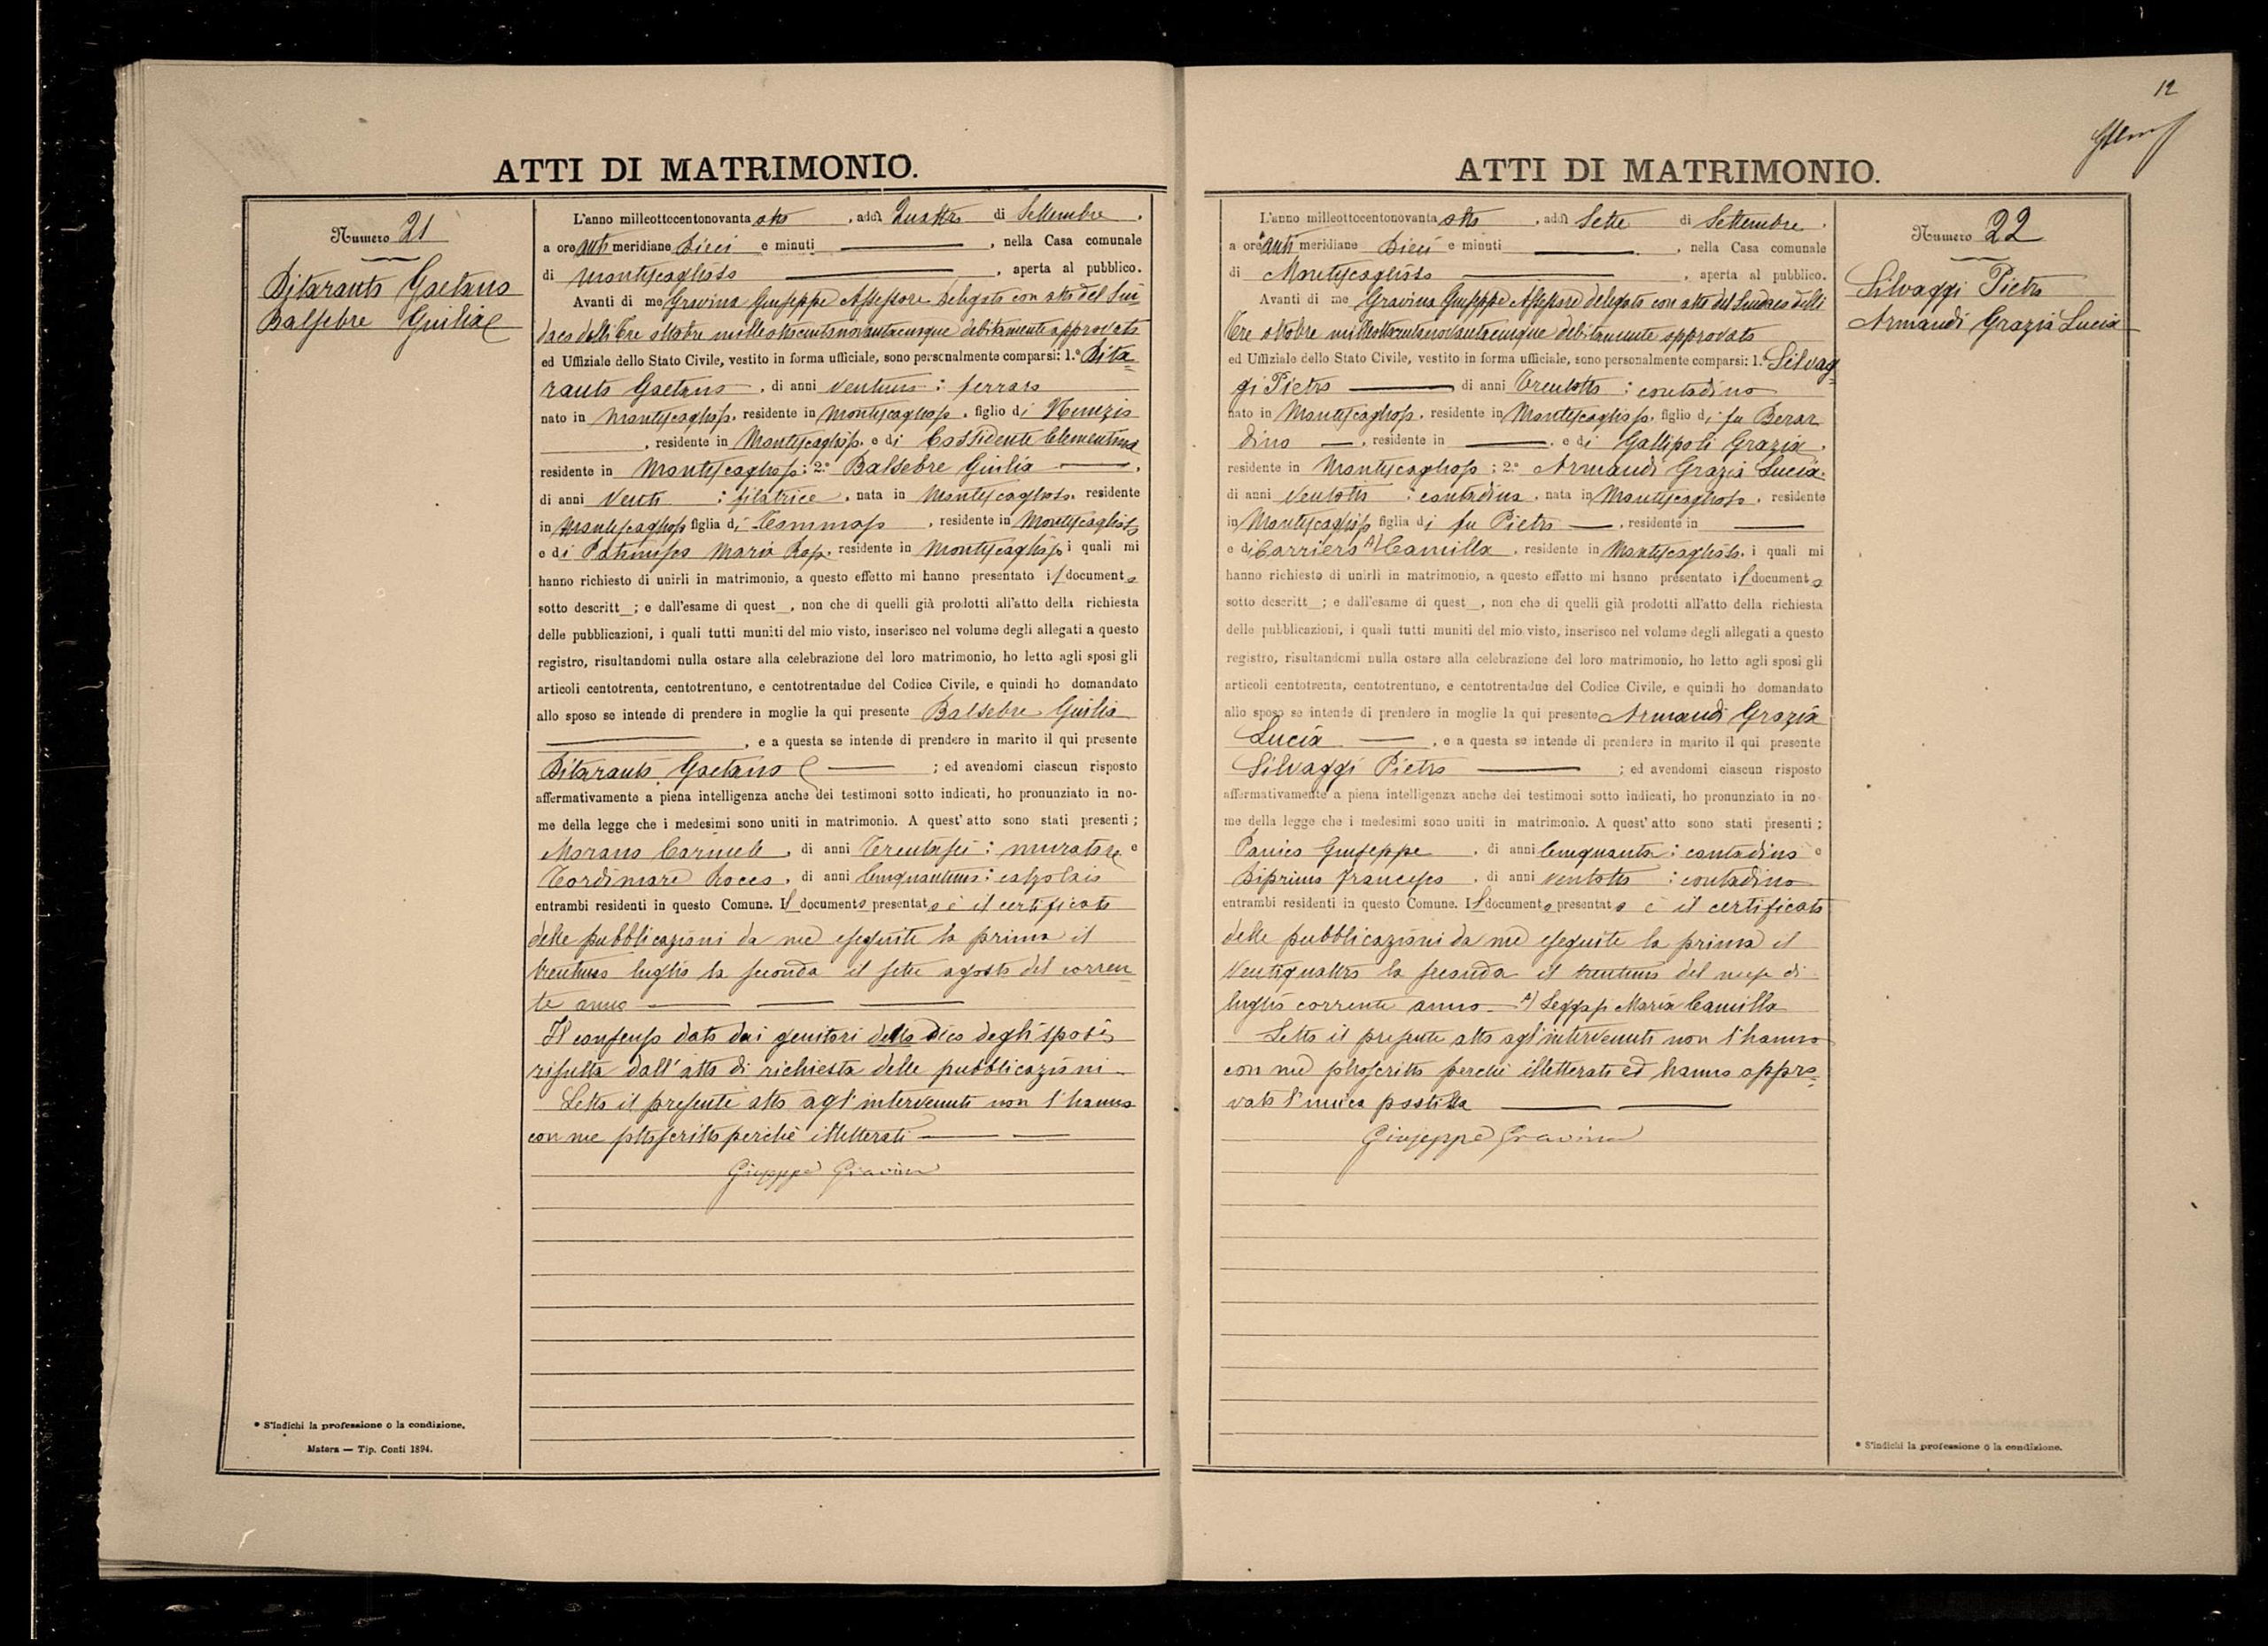 12
ATTI DI MATRIMONIO.
Numero 21
Ditaranto Gaetano
Balsebre Giulia
L'anno milleottocentonovanta otto, addì Quattro di Settembre,
a ore anti meridiane Dieci e minuti, nella Casa comunale
di Montescaglioso, aperta al pubblico.
Avanti di me Gravina Giuseppe Assessore Delegato con atto del Sin
daco delli tre ottobre milleottocentonovantacinque debitamente approvato
ed Uffiziale dello Stato Civile, vestito in forma ufficiale, sono personalmente comparsi: 1.° Dita=
ranto Gaetano, di anni ventuno; ferraro
nato in Montescaglioso, residente in Montescaglioso, figlio di Nunzio
, residente in Montescaglioso, e di Cossidente Clementina
residente in Montescaglioso; 2.° Balsebre Giulia,
di anni venti; filatrice, nata in Montescaglioso, residente
in Montescaglioso figlia di Tommaso, residente in Montescaglioso
e di Patimisco Maria Rosa, residente in Montescaglioso i quali mi
hanno richiesto di unirli in matrimonio, a questo effetto mi hanno presentato il documento
sotto descritt_; e dall'esame di quest_, non che di quelli già prodotti all'atto della richiesta
delle pubblicazioni, i quali tutti muniti del mio visto, inserisco nel volume degli allegati a questo
registro, risultandomi nulla ostare alla celebrazione del loro matrimonio, ho letto agli sposi gli
articoli centotrenta, centotrentuno, e centotrentadue del Codice Civile, e quindi ho domandato
allo sposo se intende di prendere in moglie la qui presente Balsebre Giulia
, e a questa se intende di prendere in marito il qui presente
Ditaranto Gaetano; ed avendomi ciascun risposto
affermativamente a piena intelligenza anche dei testimoni sotto indicati, ho pronunziato in no-
me della legge che i medesimi sono uniti in matrimonio. A quest'atto sono stati presenti;
Morano Carmele, di anni Trentasei; muratore e
Tordimare Rocco, di anni Cinquantuno; calzolaio
entrambi residenti in questo Comune. Il documento presentato è il certificato
delle pubblicazioni da me eseguite la prima il
trentuno luglio la seconda il sette agosto del corren=
te anno
Il consenso dato dai genitori dello dico degli sposi
risulta dall'atto di richiesta delle pubblicazioni.
Letto il presente atto agl'intervenuti non l'hanno
con me sottoscritto perchè illetterati
Giuseppe Gravina
* S'indichi la professione o la condizione.
Matera — Tip. Conti 1894.
ATTI DI MATRIMONIO.
Numero 22
Silvaggi Pietro
Armandi Grazia Lucia
L'anno milleottocentonovanta otto, addì Sette di Settembre,
a ore anti meridiane Dieci e minuti, nella Casa comunale
di Montescaglioso, aperta al pubblico.
Avanti di me Gravina Giuseppe Assessore delegato con atto del Sindaco delli
Tre ottobre milleottocentonovantacinque debitamente approvato
ed Uffiziale dello Stato Civile, vestito in forma ufficiale, sono personalmente comparsi: 1.° Silvag=
gi Pietro di anni Trentotto; contadino
nato in Montescaglioso, residente in Montescaglioso, figlio di fu Berar
dino, residente in, e di Gallipoli Grazia,
residente in Montescaglioso; 2.° Armandi Grazia Lucia,
di anni ventotto; contadina, nata in Montescaglioso, residente
in Montescaglioso figlia di fu Pietro, residente in
e di Carriero A) Camilla, residente in Montescaglioso, i quali mi
hanno richiesto di unirli in matrimonio, a questo effetto mi hanno presentato il documento
sotto descritt_; e dall'esame di quest_, non che di quelli già prodotti all'atto della richiesta
delle pubblicazioni, i quali tutti muniti del mio visto, inserisco nel volume degli allegati a questo
registro, risultandomi nulla ostare alla celebrazione del loro matrimonio, ho letto agli sposi gli
articoli centotrenta, centotrentuno, e centotrentadue del Codice Civile, e quindi ho domandato
allo sposo se intende di prendere in moglie la qui presente Armandi Grazia
Lucia, e a questa se intende di prendere in marito il qui presente
Silvaggi Pietro; ed avendomi ciascun risposto
affermativamente a piena intelligenza anche dei testimoni sotto indicati, ho pronunziato in no-
me della legge che i medesimi sono uniti in matrimonio. A quest'atto sono stati presenti;
Panico Giuseppe, di anni Cinquanta; contadino e
Diprimo Francesco, di anni ventotto; contadino
entrambi residenti in questo Comune. Il documento presentato è il certificato
delle pubblicazioni da me eseguite la prima il
ventiquattro la seconda il trentuno del mese di
luglio corrente anno. A) Leggasi Maria Camilla
Letto il presente atto agl'intervenuti non l'hanno
con me sottoscritto perchè illetterati ed hanno appro=
vato l'unica postilla
Giuseppe Gravina
* S'indichi la professione o la condizione.